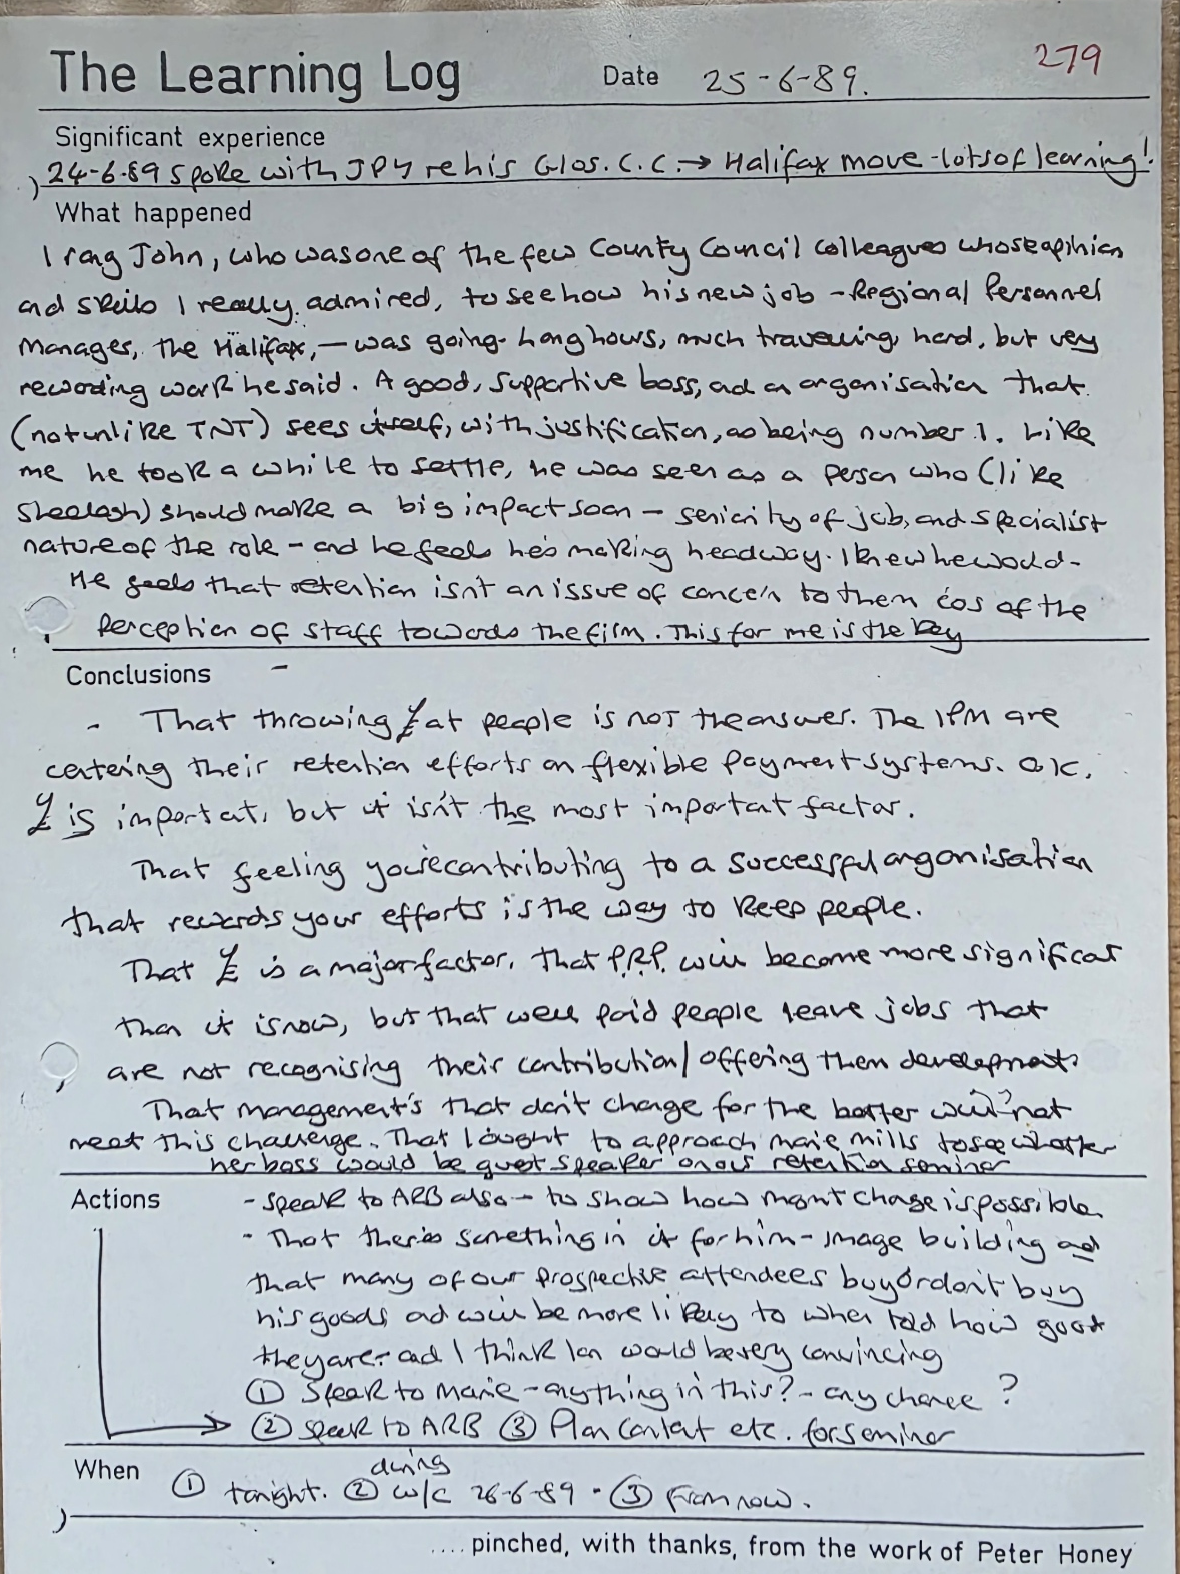 279
The Learning Log Date 25-6-89.
Significant experience
24-6-89 Spoke with JPY re his Glos. C.C. → Halifax move - lots of learning!
What happened
I rang John, who was one of the few County Council colleagues whose opinion
and skills I really admired, to see how his new job - Regional Personnel
Manager, the Halifax, - was going. Long hours, much travelling, hard, but very
rewarding work he said. A good, supportive boss, and an organisation that
(not unlike TNT) sees itself, with justification, as being number 1. Like
me he took a while to settle, he was seen as a person who (like
Sheelagh) should make a big impact soon - seniority of job, and specialist
nature of the role - and he feels he's making headway. I knew he would -
He feels that retention isn't an issue of concern to them cos of the
perception of staff towards the firm. This for me is the key
Conclusions -
- That throwing £ at people is not the answer. The IPM are
centering their retention efforts on flexible payment systems. OK,
£ is important, but it isn't the most important factor.
That feeling you're contributing to a successful organisation
that rewards your efforts is the way to keep people.
That £ is a major factor, that P.R.P. will become more significant
than it is now, but that well paid people leave jobs that
are not recognising their contribution/offering them development.
That management's that don't change for the better will? not
meet this challenge. That I ought to approach Marie Mills to see whether
her boss would be guest speaker on our retention seminar
Actions - Speak to ARB also - to show how mgmt change is possible.
- That there's something in it for him - image building and
that many of our prospective attendees buy or don't buy
his goods and will be more likely to when told how good
they are - and I think Ian would be very convincing
① Speak to Marie - anything in this? - any chance?
② Speak to ARB ③ Plan content etc. for seminar
When ① tonight. ② during w/c 26-6-89. ③ From now.
.... pinched, with thanks, from the work of Peter Honey